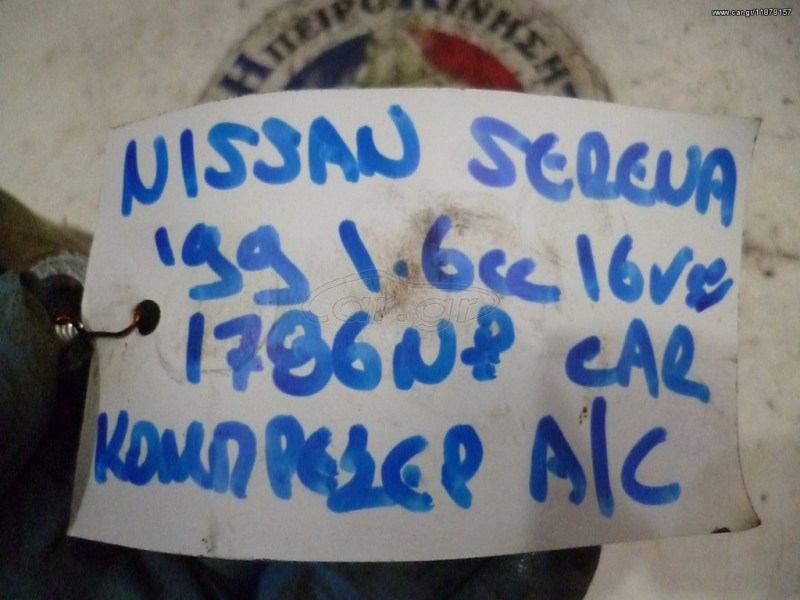 www.car.gr/11878157
ΗΠΕΙΡΟΚΙΝΗΣΗ
NISSAN SERENA
'99 1.6cc 16v
car.gr
1786 CAR
ΚΟΜΠΡΕΣΕΡ A/C